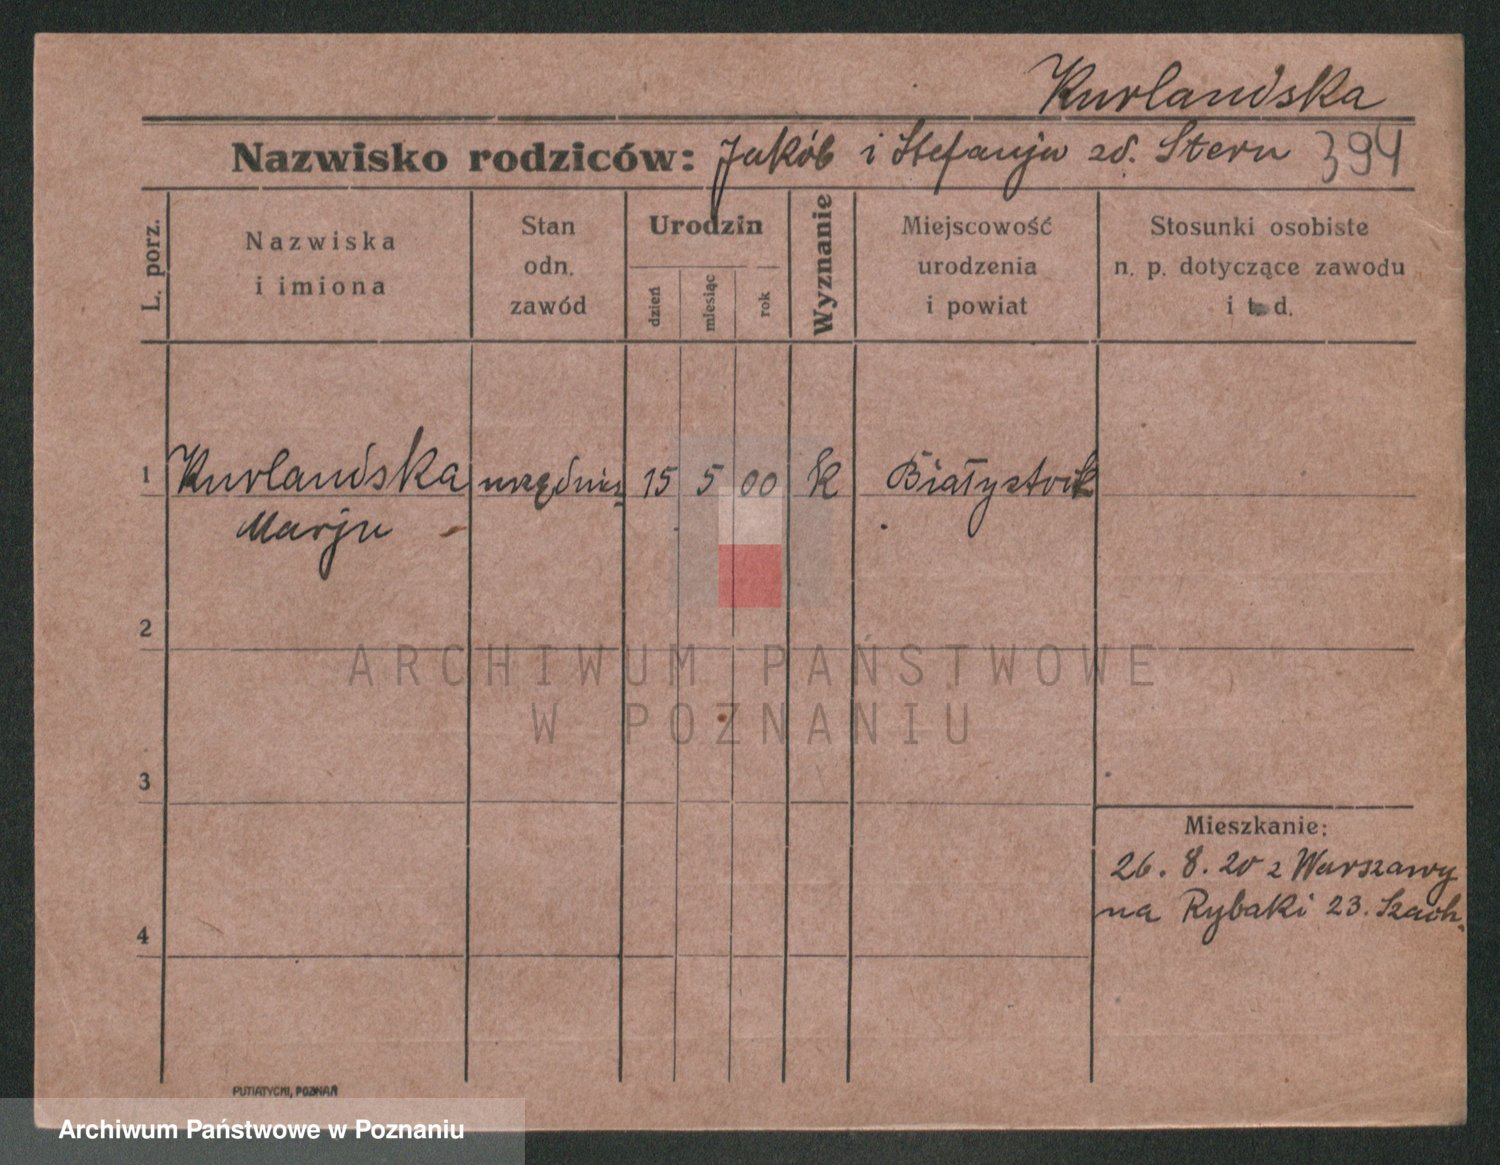 Kurlandska
Nazwisko rodziców: Jakób i Stefanja zd. Stern 394
L. porz.
Nazwiska
i imiona
Stan
odn.
zawód
Urodzin
dzień
miesiąc
rok
Wyznanie
Miejscowość
urodzenia
i powiat
Stosunki osobiste
n. p. dotyczące zawodu
i t. d.
1 Kurlandska 15 5 00 k Białystok
Marja
2
ARCHIWUM PAŃSTWOWE
W POZNANIU
3
Mieszkanie:
26. 8. 20 z Warszawy
na Rybaki 23. Szach.
4
PUTIATYCKI, POZNAŃ
Archiwum Państwowe w Poznaniu